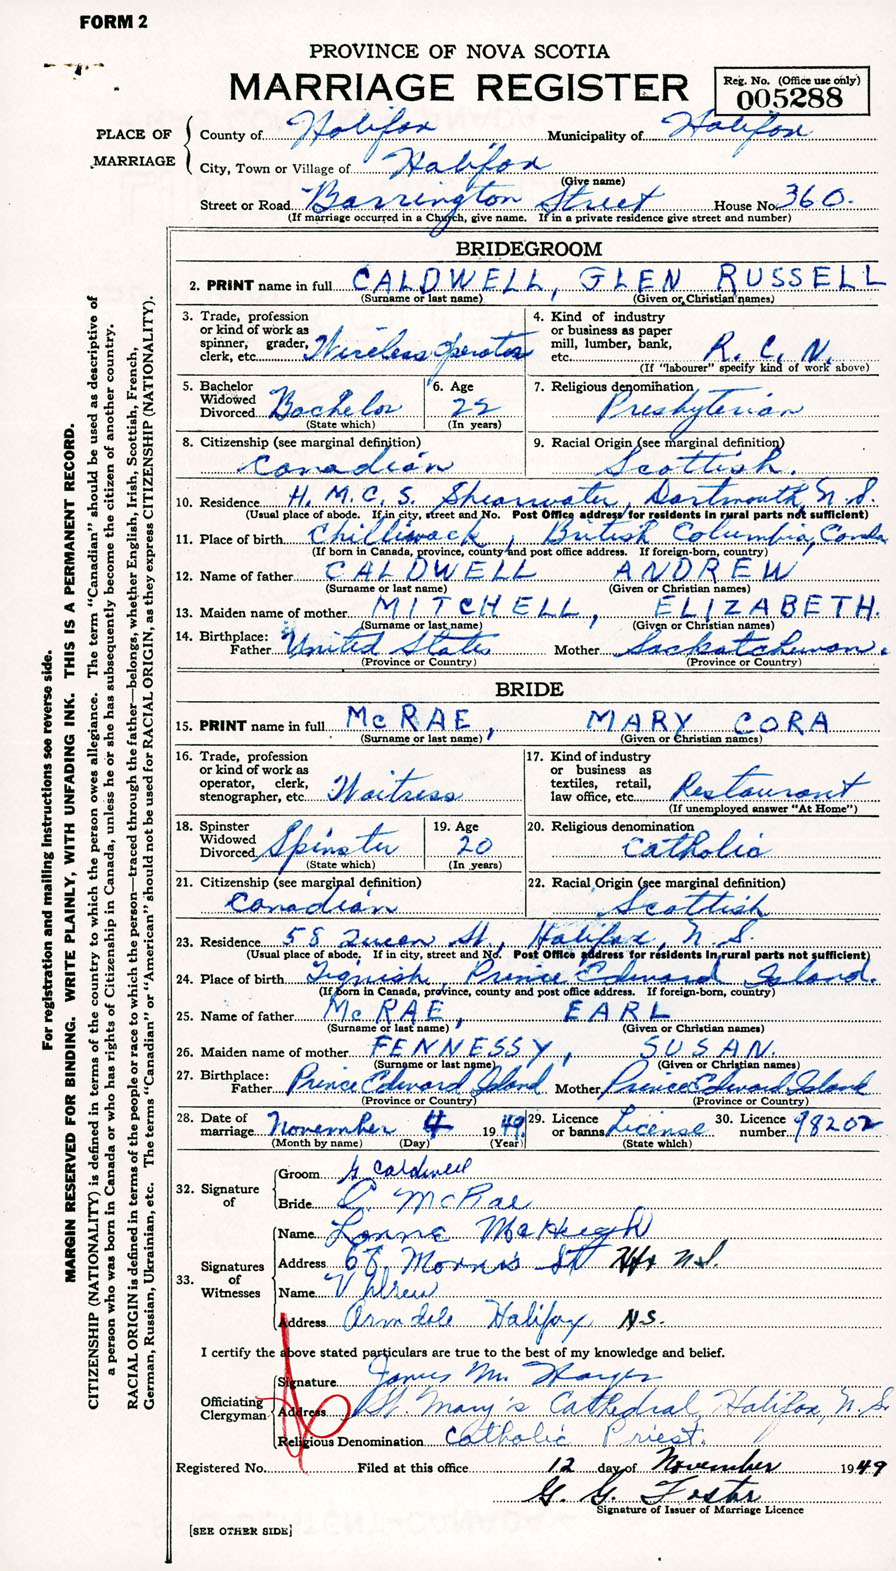 FORM 2
PROVINCE OF NOVA SCOTIA
MARRIAGE REGISTER
Reg. No. (Office use only)
005288
PLACE OF MARRIAGE
County of Halifax Municipality of Halifax
City, Town or Village of Halifax
(Give name)
Street or Road Barrington Street House No 360.
(If marriage occurred in a Church, give name. If in a private residence give street and number)
BRIDEGROOM
2. PRINT name in full CALDWELL, GLEN RUSSELL
(Surname or last name) (Given or Christian names)
3. Trade, profession or kind of work as spinner, grader, clerk, etc. Wireless Operator
4. Kind of industry or business as paper mill, lumber, bank, etc. R.C.N.
(If "labourer" specify kind of work above)
5. Bachelor Widowed Divorced Bachelor
(State which)
6. Age 22
(In years)
7. Religious denomination Presbyterian
8. Citizenship (see marginal definition) Canadian
9. Racial Origin (see marginal definition) Scottish.
10. Residence H.M.C.S. Shearwater, Dartmouth, N.S.
(Usual place of abode. If in city, street and No. Post Office address for residents in rural parts not sufficient)
11. Place of birth Chilliwack, British Columbia, Canada
(If born in Canada, province, county and post office address. If foreign-born, country)
12. Name of father CALDWELL ANDREW
(Surname or last name) (Given or Christian names)
13. Maiden name of mother MITCHELL, ELIZABETH.
(Surname or last name) (Given or Christian names)
14. Birthplace: Father United States Mother Saskatchewan.
(Province or Country) (Province or Country)
BRIDE
15. PRINT name in full McRAE, MARY CORA
(Surname or last name) (Given or Christian names)
16. Trade, profession or kind of work as operator, clerk, stenographer, etc. Waitress
17. Kind of industry or business as textiles, retail, law office, etc. Restaurant
(If unemployed answer "At Home")
18. Spinster Widowed Divorced Spinster
(State which)
19. Age 20
(In years)
20. Religious denomination Catholic
21. Citizenship (see marginal definition) Canadian
22. Racial Origin (see marginal definition) Scottish
23. Residence 58 Queen St, Halifax, N.S.
(Usual place of abode. If in city, street and No. Post Office address for residents in rural parts not sufficient)
24. Place of birth Tignish, Prince Edward Island.
(If born in Canada, province, county and post office address. If foreign-born, country)
25. Name of father McRAE, EARL
(Surname or last name) (Given or Christian names)
26. Maiden name of mother FENNESSY, SUSAN.
(Surname or last name) (Given or Christian names)
27. Birthplace: Father Prince Edward Island Mother Prince Edward Island
(Province or Country) (Province or Country)
28. Date of marriage November 4 1949.
(Month by name) (Day) (Year)
29. Licence or banns License
(State which)
30. Licence number 98202
32. Signature of
Groom G Caldwell
Bride C. McRae
33. Signatures of Witnesses
Name
Address 68 Morris St Hfx N.S.
Name
Address Armdale Halifax N.S.
I certify the above stated particulars are true to the best of my knowledge and belief.
Officiating Clergyman
Signature James M.
Address St. Mary's Cathedral, Halifax, N.S.
Religious Denomination Catholic Priest.
Registered No. Filed at this office 12 day of November 1949
G. G. Foster
Signature of Issuer of Marriage Licence
[SEE OTHER SIDE]
For registration and mailing instructions see reverse side.
MARGIN RESERVED FOR BINDING. WRITE PLAINLY, WITH UNFADING INK. THIS IS A PERMANENT RECORD.
CITIZENSHIP (NATIONALITY) is defined in terms of the country to which the person owes allegiance. The term "Canadian" should be used as descriptive of
a person who was born in Canada or who has rights of Citizenship in Canada, unless he or she has subsequently become the citizen of another country.
RACIAL ORIGIN is defined in terms of the people or race to which the person—traced through the father—belongs, whether English, Irish, Scottish, French,
German, Russian, Ukrainian, etc. The terms "Canadian" or "American" should not be used for RACIAL ORIGIN, as they express CITIZENSHIP (NATIONALITY).